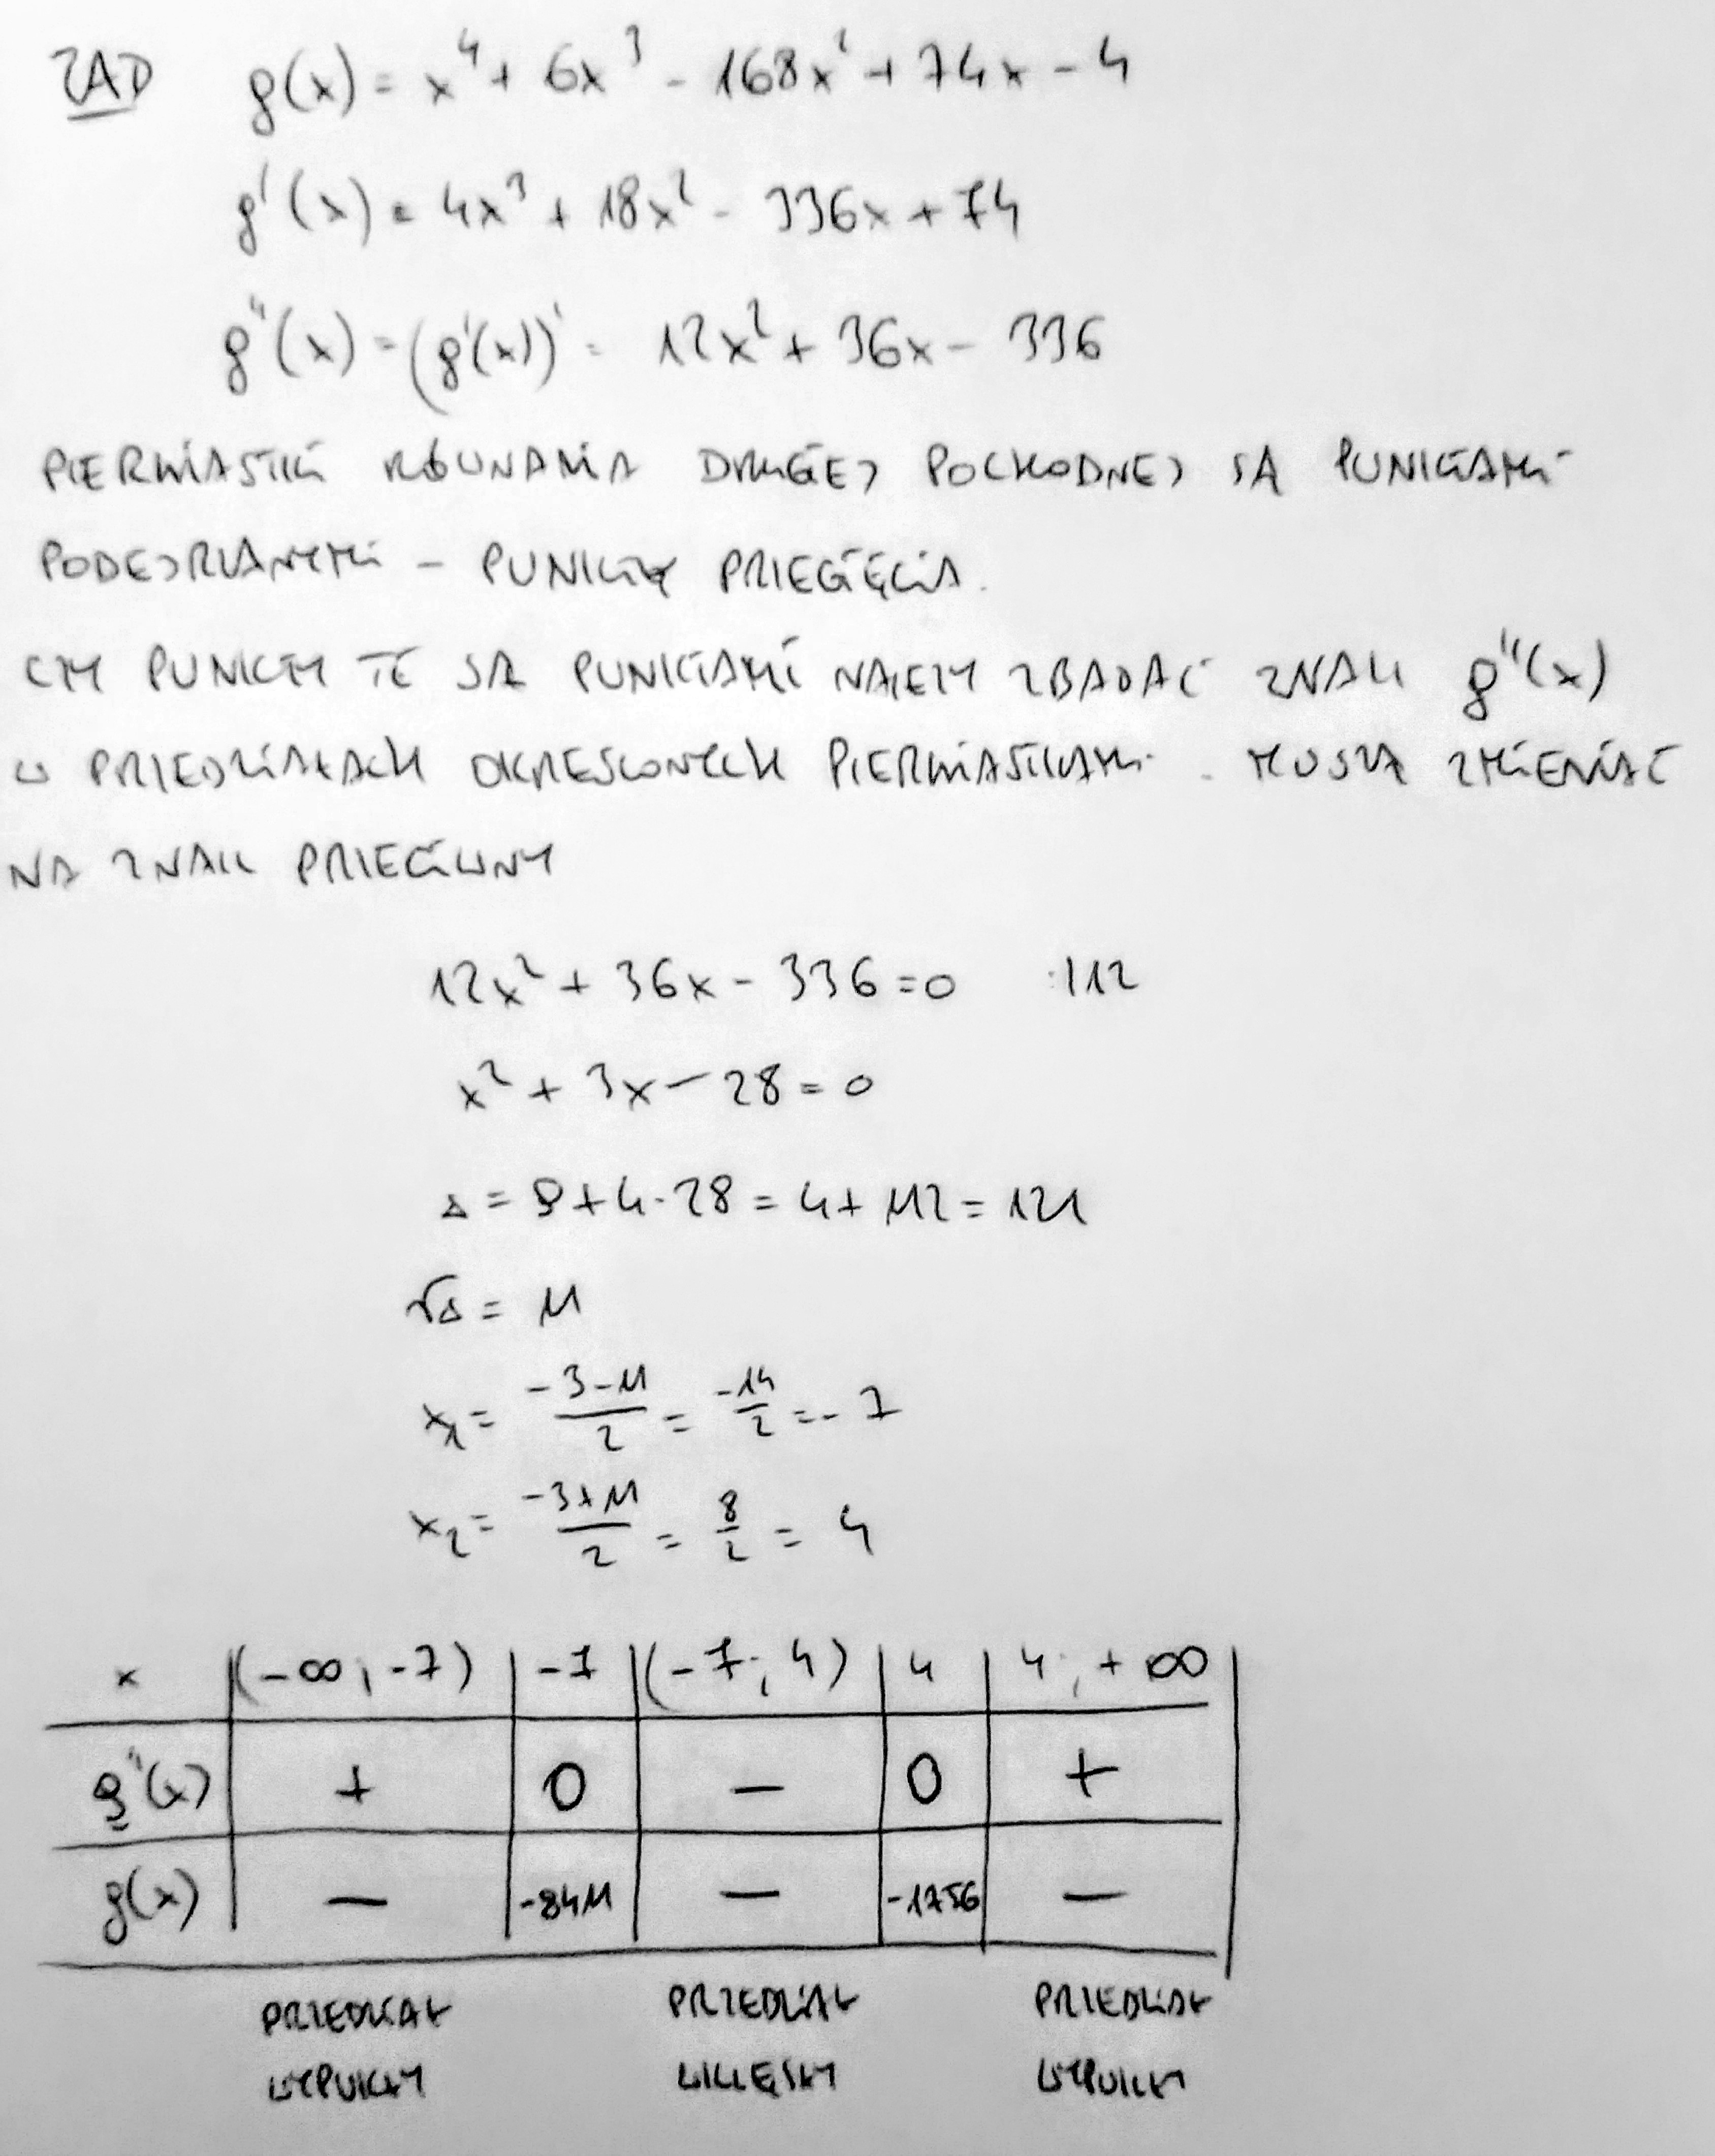 ZAD g(x) = x⁴ + 6x³ - 168x² + 74x - 4
g'(x) = 4x³ + 18x² - 336x + 74
g''(x) = (g'(x))' = 12x² + 36x - 336
PIERWIASTKI RÓWNANIA DRUGIEJ POCHODNEJ SĄ PUNKTAMI
PODEJRZANYMI - PUNKTY PRZEGIĘCIA.
CZY PUNKTY TE SĄ PUNKTAMI NALEŻY ZBADAĆ ZNAK g''(x)
W PRZEDZIAŁACH OKREŚLONYCH PIERWIASTKAMI. MUSZĄ ZMIENIAĆ
NA ZNAK PRZECIWNY
12x² + 36x - 336 = 0 :|12
x² + 3x - 28 = 0
Δ = 9 + 4·28 = 4 + 112 = 121
√Δ = 11
x₁ = (-3-11)/2 = -14/2 = -7
x₂ = (-3+11)/2 = 8/2 = 4
x (-∞; -7) -7 (-7; 4) 4 4; +∞
g''(x) + 0 - 0 +
g(x) - -8411 - -1756 -
PRZEDZIAŁ PRZEDZIAŁ PRZEDZIAŁ
WYPUKŁY WKLĘSŁY WYPUKŁY